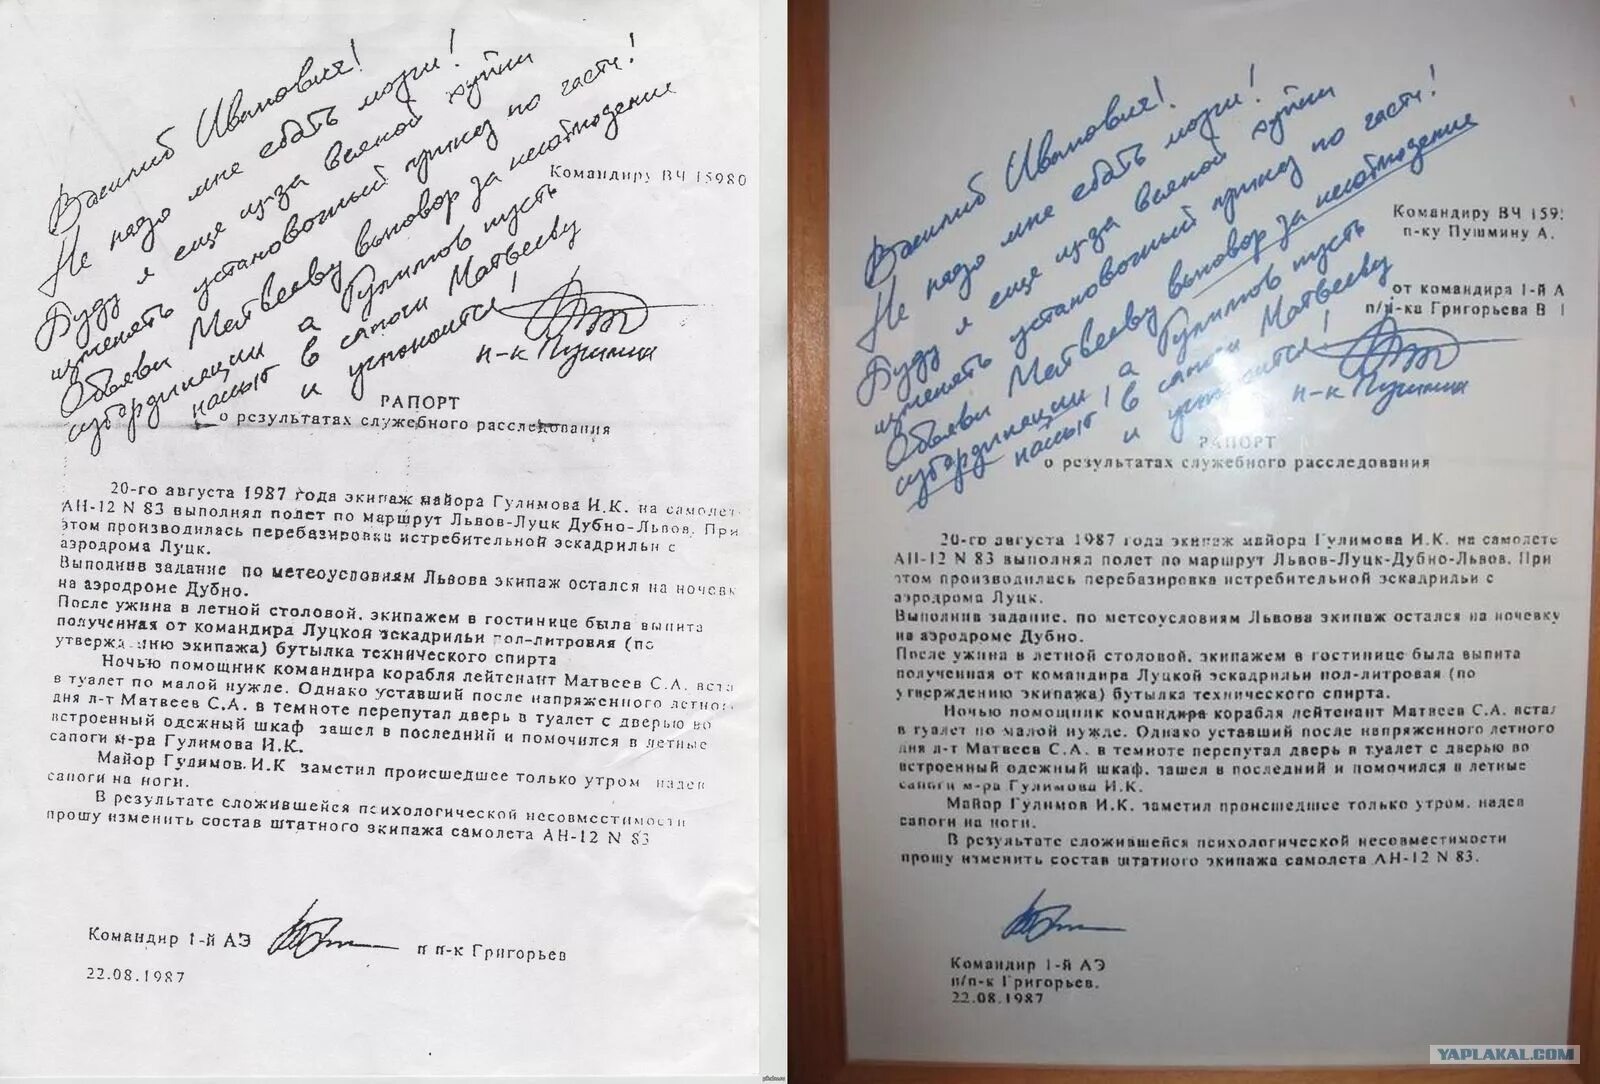 Василий Иванович!
Не надо мне ебать мозги!
Буду я еще из-за всякой хуйни
изменять установочный приказ по части!
Объяви Матвееву выговор за несоблюдение
субординации, а Гулимов пусть
нассыт в сапоги Матвееву
и успокоится!
п-к Пушмин
Командиру ВЧ 15980
РАПОРТ
о результатах служебного расследования
20-го августа 1987 года экипаж майора Гулимова И.К. на самолет
АН-12 N 83 выполнял полет по маршрут Львов-Луцк Дубно-Львов. При
этом производилась перебазировка истребительной эскадрильи с
аэродрома Луцк.
Выполнив задание по метеоусловиям Львова экипаж остался на ночевк
на аэродроме Дубно.
После ужина в летной столовой, экипажем в гостинице была выпита
полученная от командира Луцкой эскадрильи пол-литровая (по
утвержд нию экипажа) бутылка технического спирта
Ночью помощник командира корабля лейтенант Матвеев С.А. вста
в туалет по малой нужде. Однако уставший после напряженного летног
дня л-т Матвеев С.А. в темноте перепутал дверь в туалет с дверью во
встроенный одежный шкаф зашел в последний и помочился в летные
сапоги м-ра Гулимова И.К.
Майор Гулимов И.К заметил происшедшее только утром надев
сапоги на ноги.
В результате сложившейся психологической несовместимости
прошу изменить состав штатного экипажа самолета АН-12 N 83
Командир 1-й АЭ п п-к Григорьев
22.08.1987
Василий Иванович!
Не надо мне ебать мозги!
Буду я еще из-за всякой хуйни
изменять установочный приказ по части!
Объяви Матвееву выговор за несоблюдение
субординации, а Гулимов пусть
нассыт в сапоги Матвееву
и успокоится!
п-к Пушмин
Командиру ВЧ 159
п-ку Пушмину А.
от командира 1-й А
п/п-ка Григорьева В
РАПОРТ
о результатах служебного расследования
20-го августа 1987 года экипаж майора Гулимова И.К. на самолете
АН-12 N 83 выполнял полет по маршруту Львов-Луцк-Дубно-Львов. При
этом производилась перебазировка истребительной эскадрильи с
аэродрома Луцк.
Выполнив задание, по метеоусловиям Львова экипаж остался на ночевку
на аэродроме Дубно.
После ужина в летной столовой, экипажем в гостинице была выпита
полученная от командира Луцкой эскадрильи пол-литровая (по
утверждению экипажа) бутылка технического спирта.
Ночью помощник командира корабля лейтенант Матвеев С.А. встал
в туалет по малой нужде. Однако уставший после напряженного летного
дня л-т Матвеев С.А. в темноте перепутал дверь в туалет с дверью во
встроенный одежный шкаф, зашел в последний и помочился в летные
сапоги м-ра Гулимова И.К.
Майор Гулимов И.К. заметил происшедшее только утром, надев
сапоги на ноги.
В результате сложившейся психологической несовместимости
прошу изменить состав штатного экипажа самолета АН-12 N 83.
Командир 1-й АЭ
п/п-к Григорьев.
22.08.1987
YAPLAKAL.COM